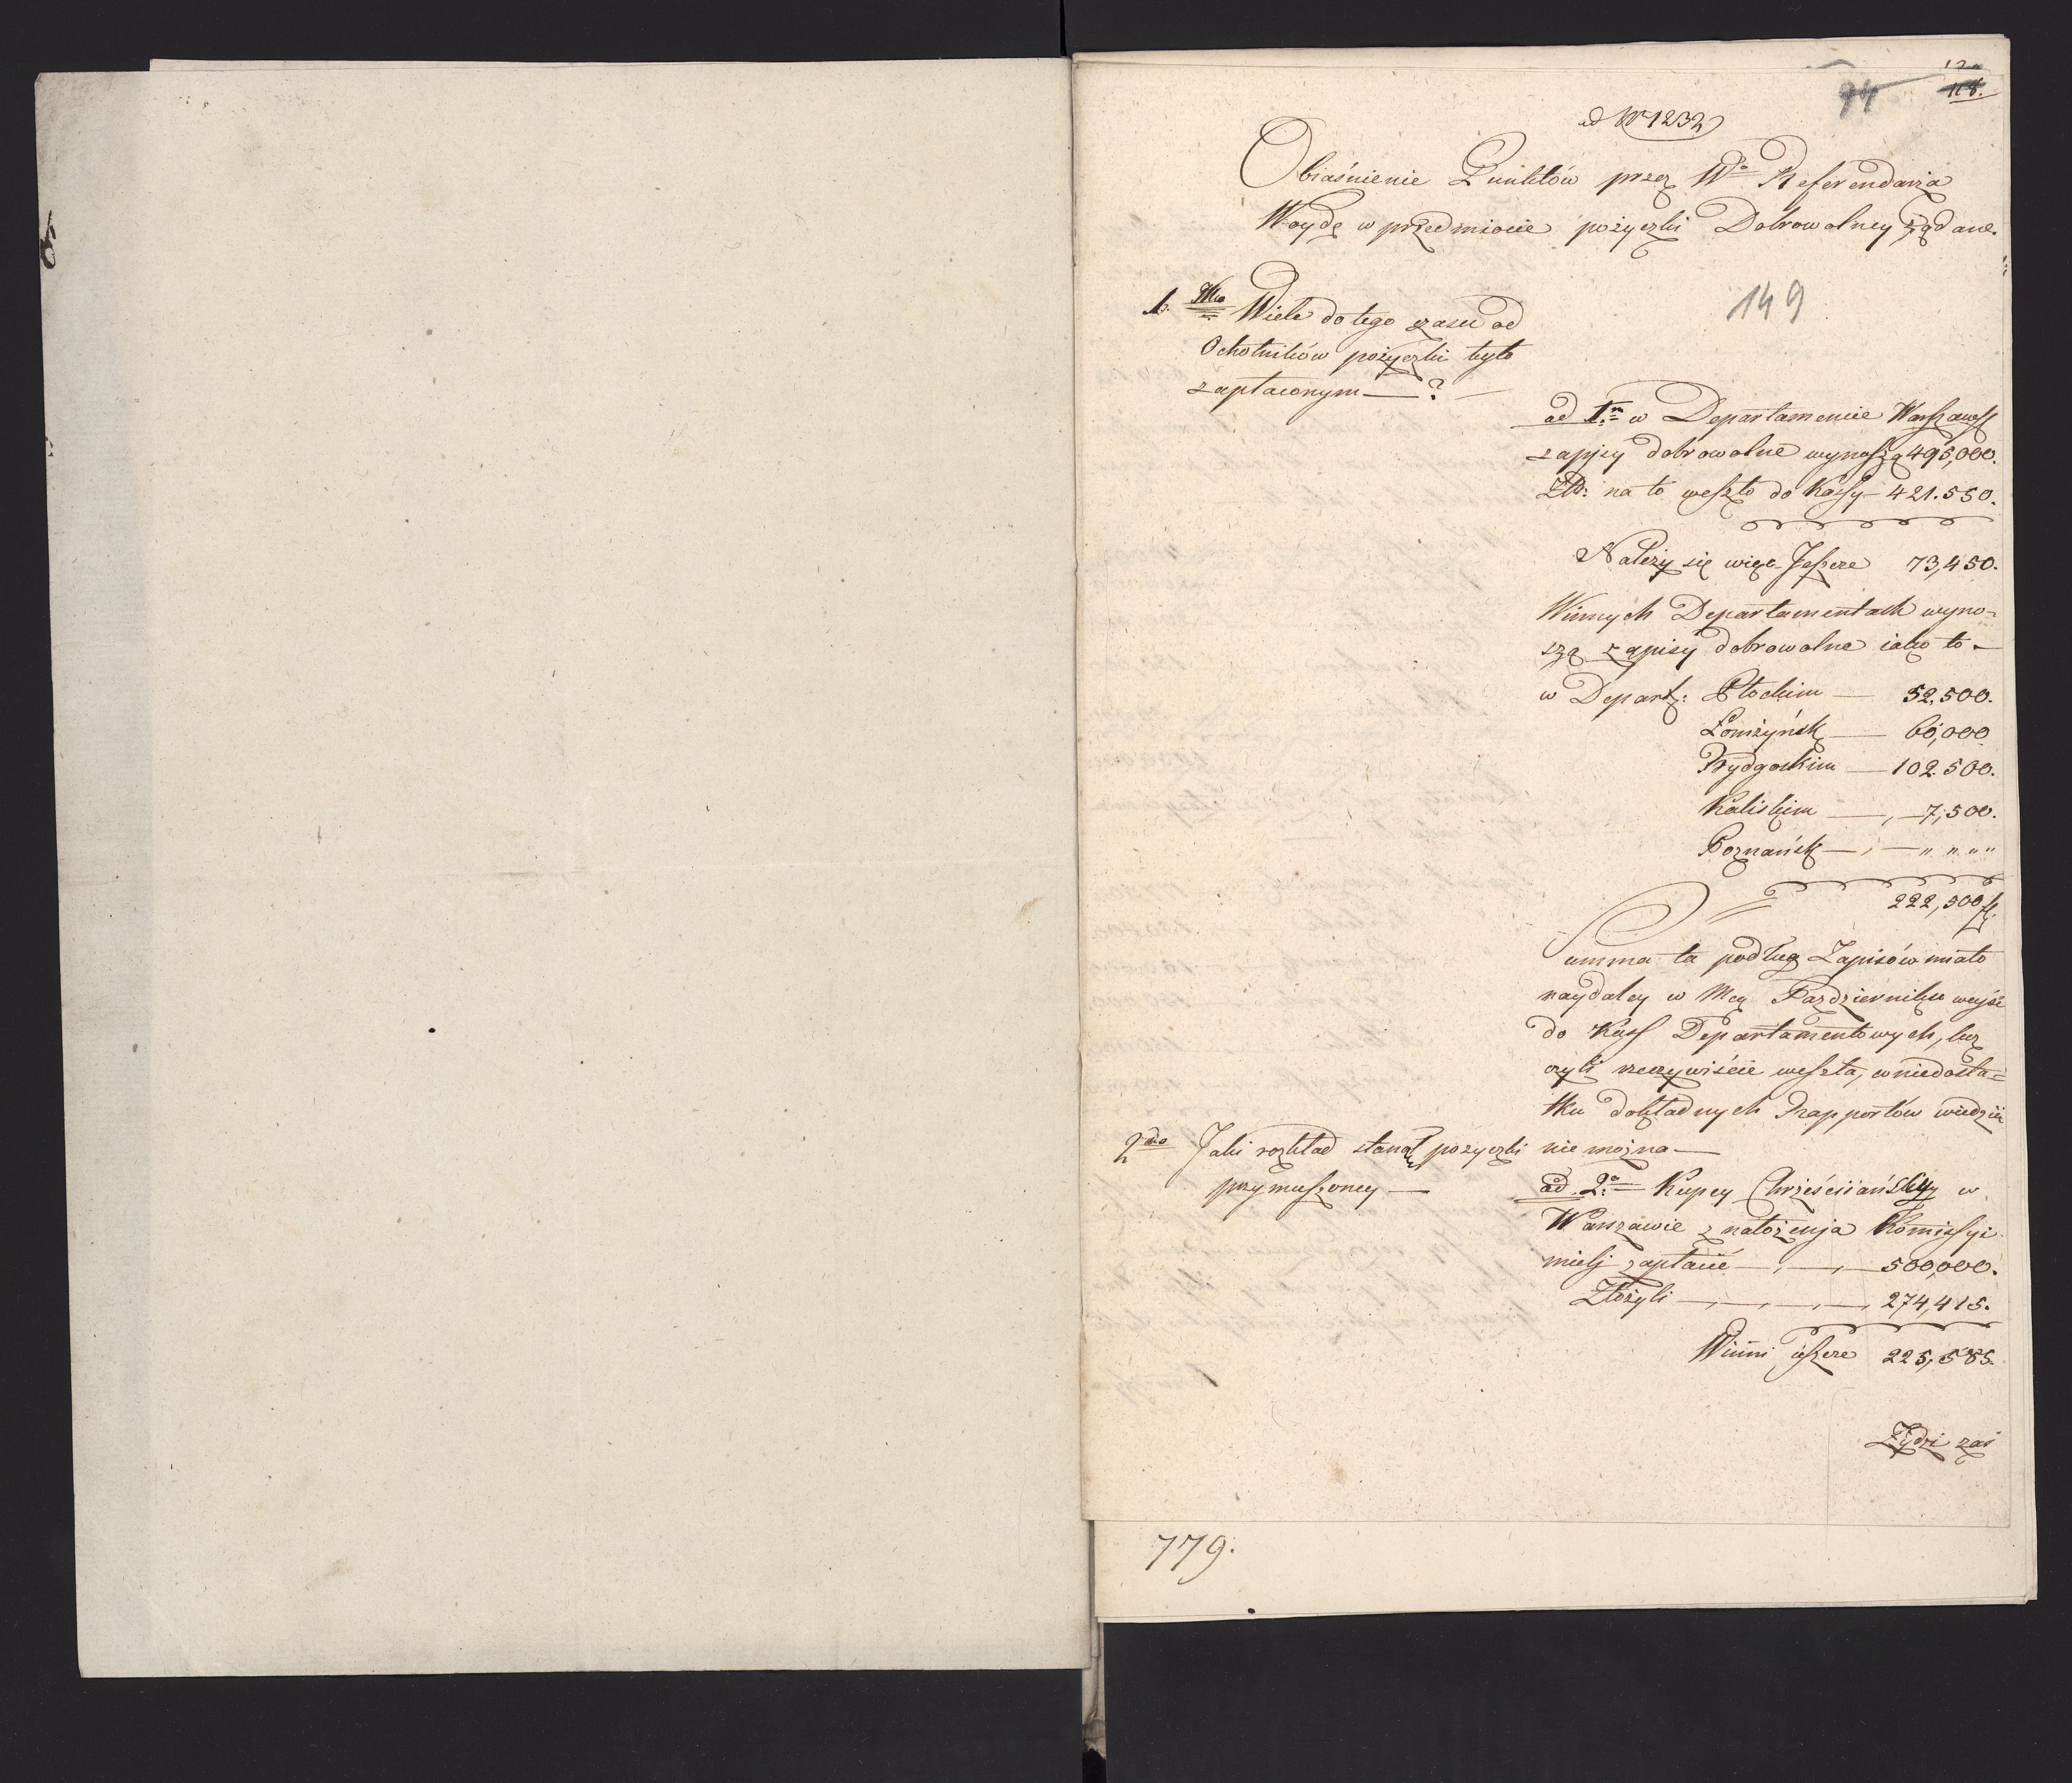 94
118.
ad Nr 1232
Obiaśnienie Punktów przez Wo Referendarza
Woydę w przedmiocie pożyczki Dobrowolney żądane.
149
1. mo Wiele do tego czasu od
Ochotników pożyczki było
zapłaconym — ?
ad 1m w Departamencie Warszaws
zapisy dobrowolne wynoszą 495,000.
Złp: na to weszło do Kassy – 421.550.
Należy się więc Jeszcze 73,450.
W innych Departamentach wyno-
szą zapisy dobrowolne iako to —
w Depart: Płockim — 52,500.
Łomżyńsk — 60,000
Bydgoskim — 102.500.
Kaliskim — 7,500.
Poznańsk — „ „ „ „
222,500 f
Summa ta podług Zapisów miało
naydaley w Mcu Pazdzierniku weyść
do Kass Departamentowych, lecz
czyli rzeczywiście weszła, w niedosta=
tku dokładnych Rapportów wiedzieć
nie można —
2do Jaki rozkład stanął pożyczki
przymuszoney —
ad 2o Kupcy Chrześciańscy w
Warszawie z nałożenia Kommissyi
mieli zapłacić — 500,000.
Złożyli — 274,415.
Winni ieszcze 225,585.
Żydzi zaś
779.